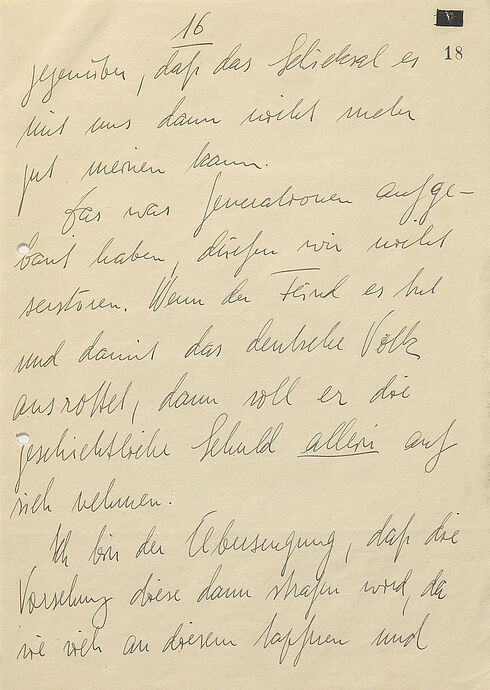 16
18
gegenüber, daß das Schicksal es
mit uns dann nicht mehr
gut meinen kann.
Das was Generationen aufge-
baut haben, dürfen wir nicht
zerstören. Wenn der Feind es tut
und damit das deutsche Volk
ausrottet, dann soll er die
geschichtliche Schuld allein auf
sich nehmen.
Ich bin der Überzeugung, daß die
Vorsehung diese dann strafen wird, da
sie sich an diesem tapferen und